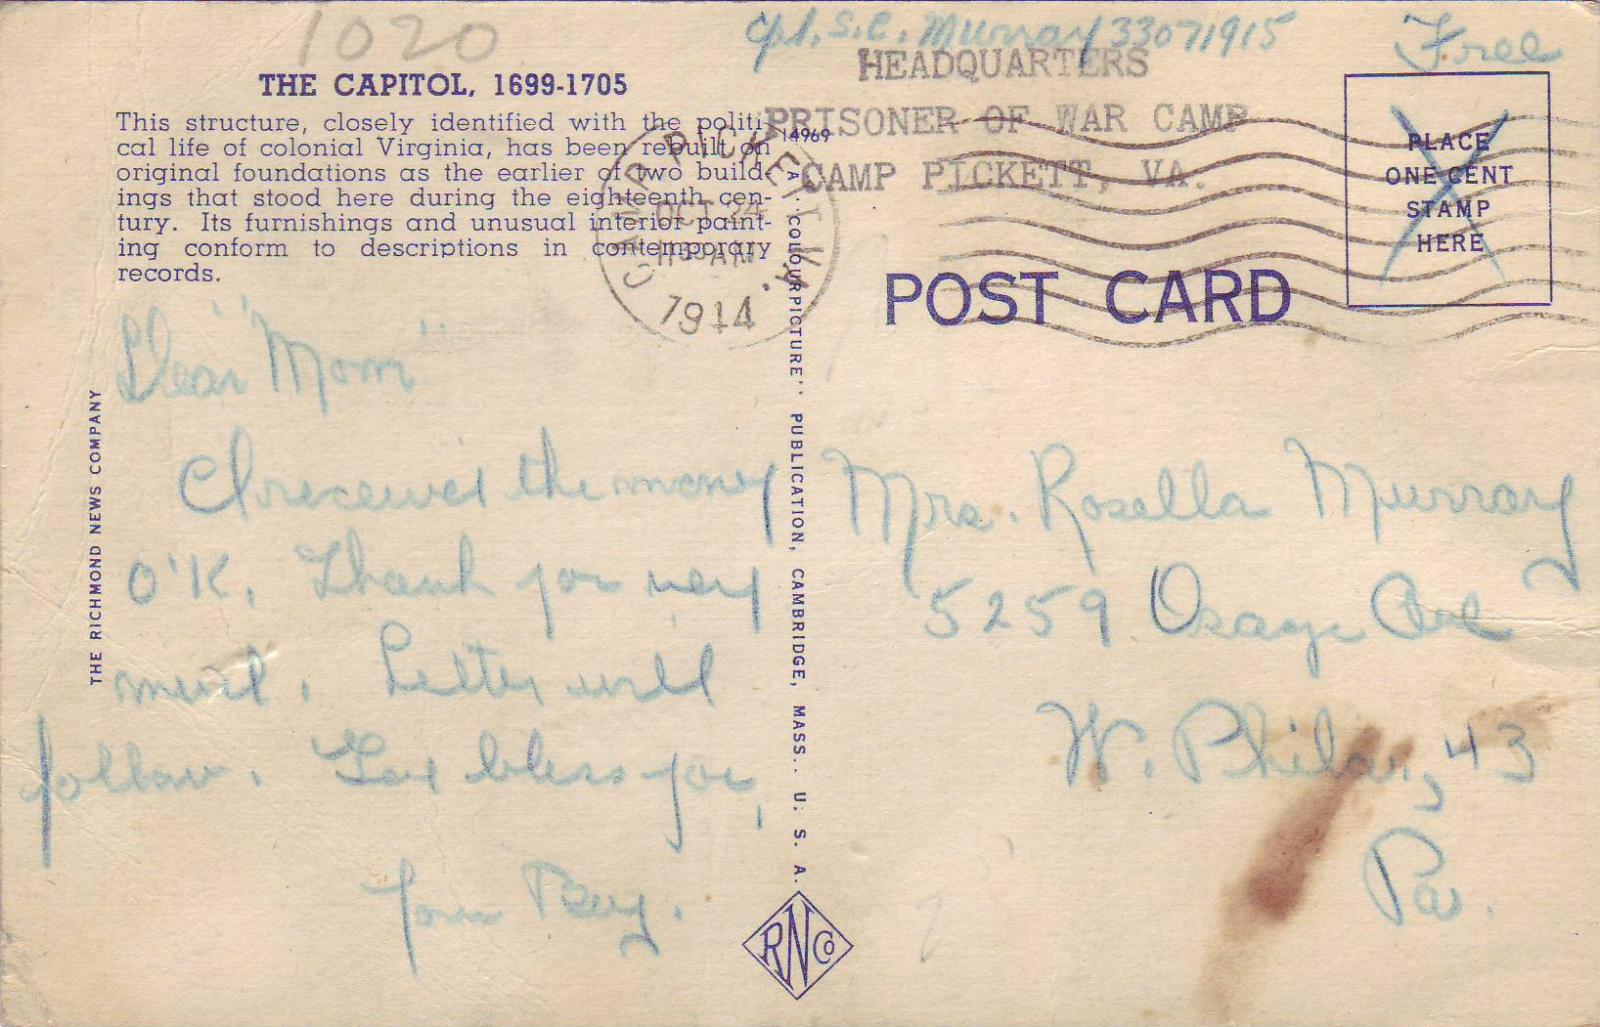 1020
Cpl. S. C. Murray 33071915
Free
HEADQUARTERS
PRISONER OF WAR CAMP
CAMP PICKETT, VA.
THE CAPITOL, 1699-1705
This structure, closely identified with the politi-
cal life of colonial Virginia, has been rebuilt on
original foundations as the earlier of two build-
ings that stood here during the eighteenth cen-
tury. Its furnishings and unusual interior paint-
ing conform to descriptions in contemporary
records.
14969
CAMP PICKETT
OCT 24
1944
PLACE
ONE CENT
STAMP
HERE
POST CARD
Dear "Mom"
I received the money
O'K. Thank you very
much. Letter will
follow. God bless you,
Your Boy.
Mrs. Rosella Murray
5259 Osage Ave
W. Phila., 43
Pa.
THE RICHMOND NEWS COMPANY
A "COLOURPICTURE" PUBLICATION, CAMBRIDGE, MASS., U. S. A.
RNCo